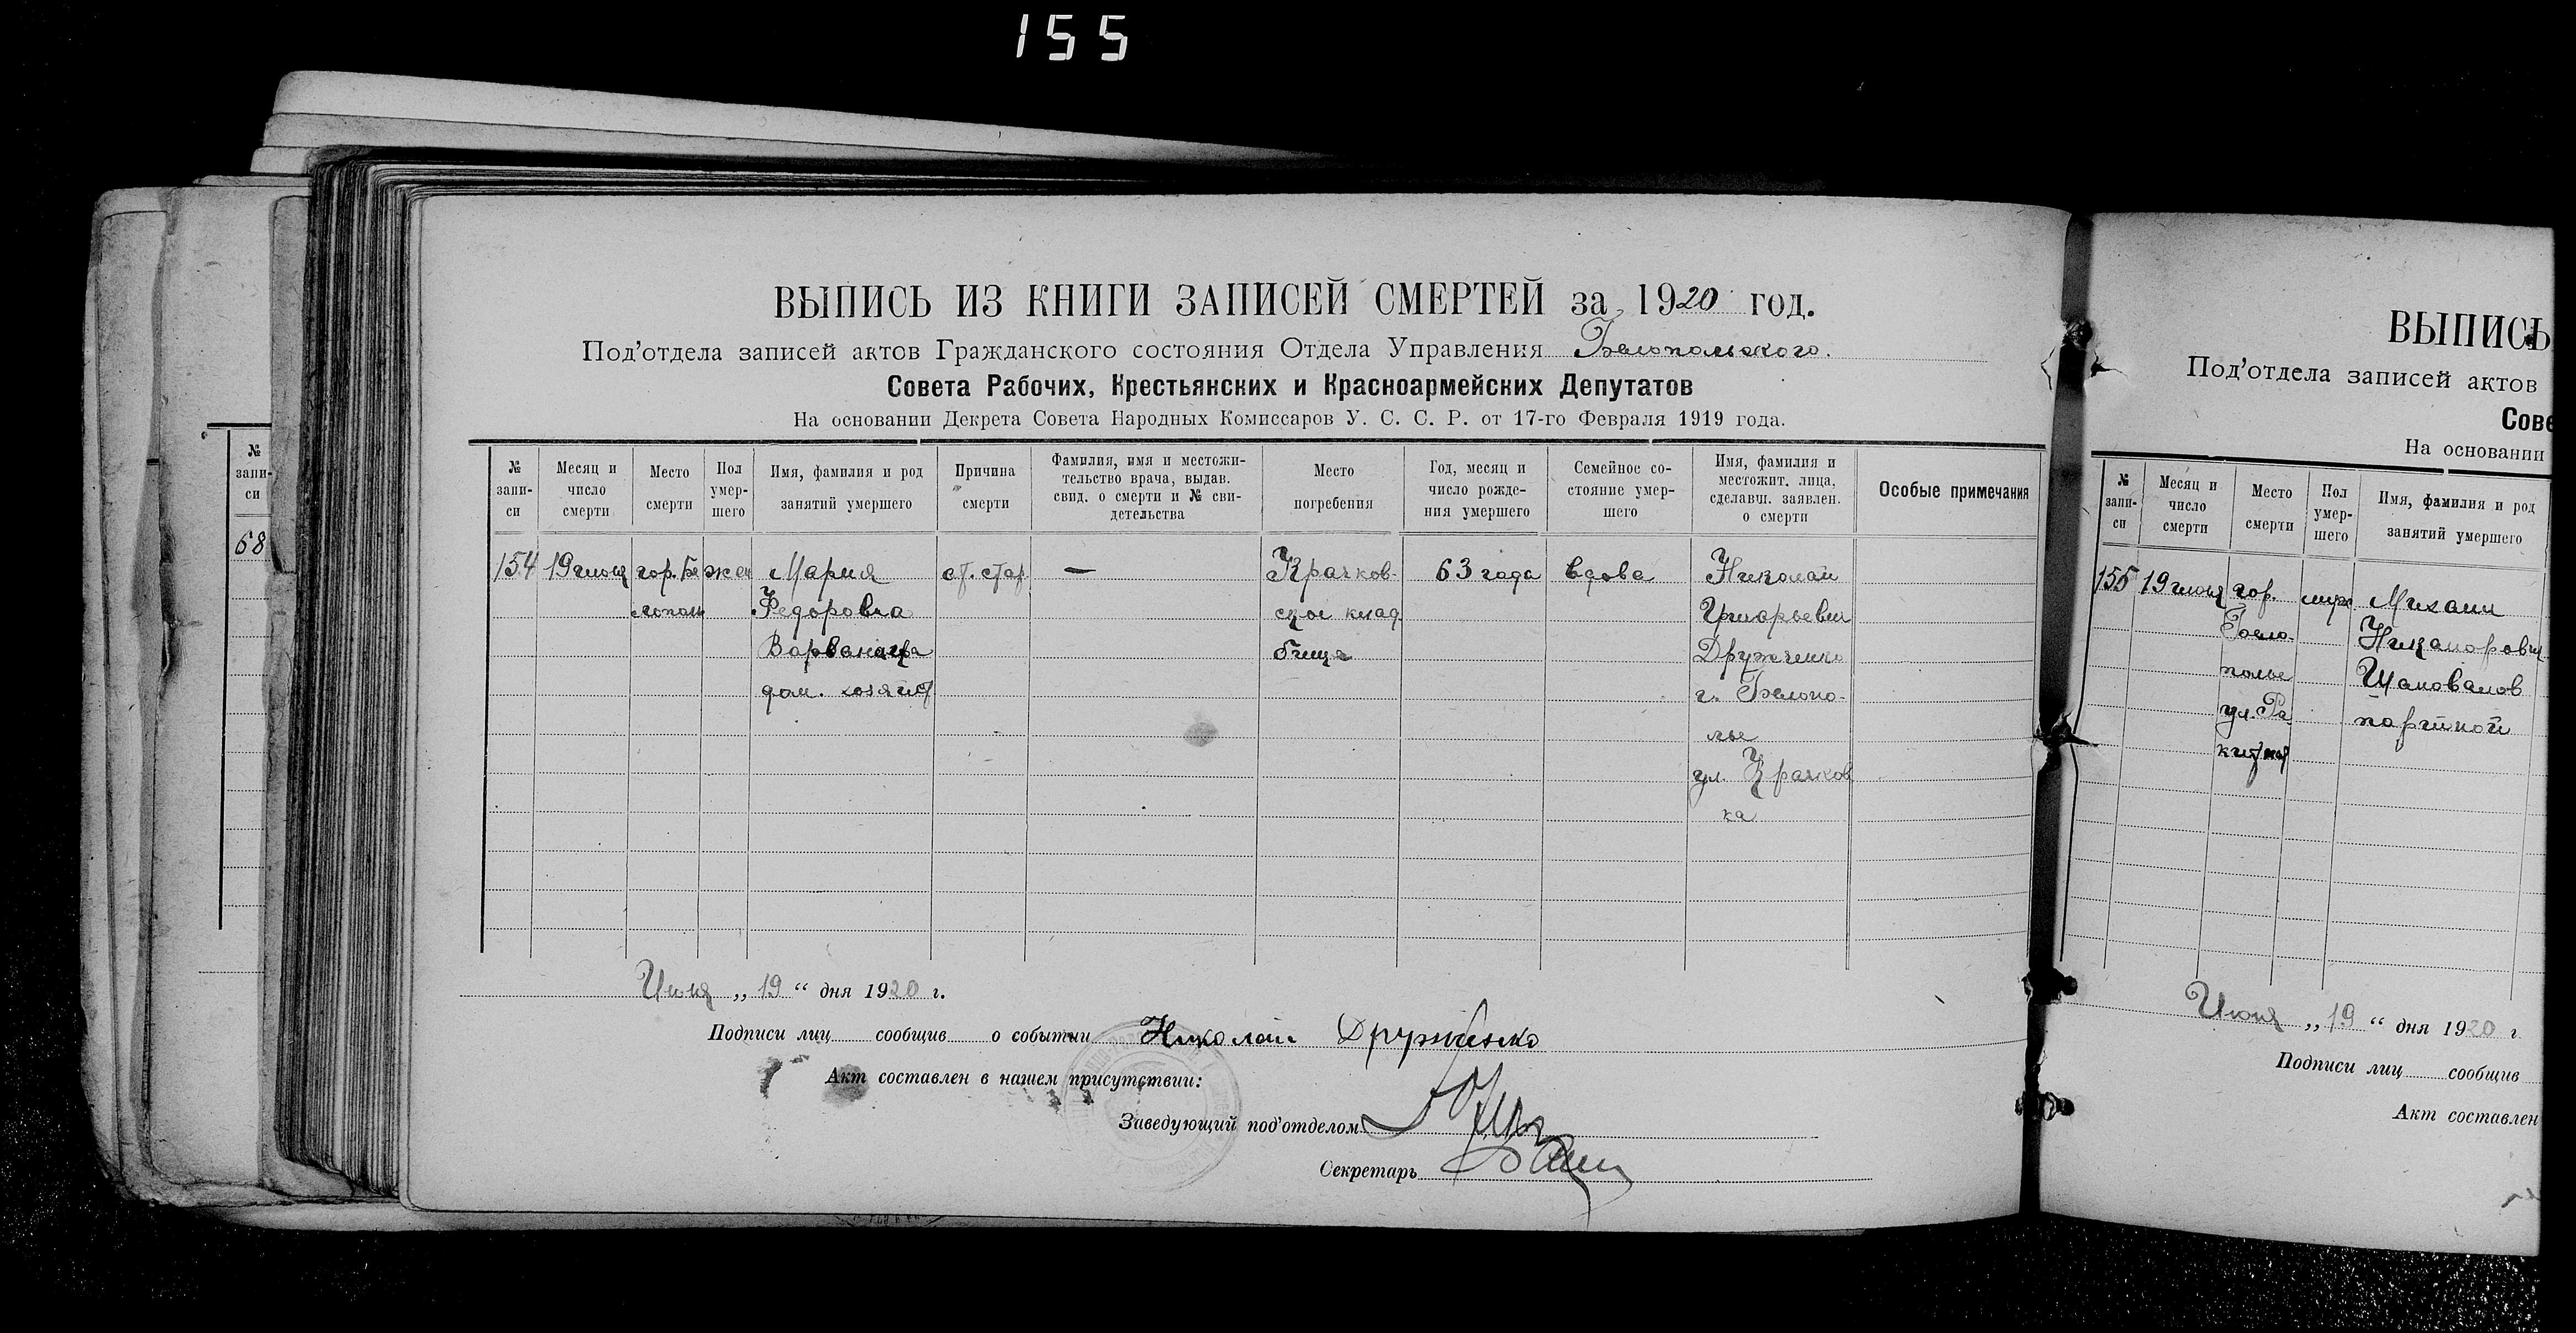 155
ВЫПИСЬ ИЗ КНИГИ ЗАПИСЕЙ СМЕРТЕЙ за 1920 год.
Под'отдела записей актов Гражданского состояния Отдела Управления Белопольского.
Совета Рабочих, Крестьянских и Красноармейских Депутатов
На основании Декрета Совета Народных Комиссаров У. С. С. Р. от 17-го Февраля 1919 года.
№ запи-
си
Месяц и
число
смерти
Место
смерти
Пол
умер-
шего
Имя, фамилия и род
занятий умершего
Причина
смерти
Фамилия, имя и местожи-
тельство врача, выдав.
свид. о смерти и № сви-
детельства
Место
погребения
Год, месяц и
число рожде-
ния умершего
Семейное со-
стояние умер-
шего
Имя, фамилия и
местожит. лица,
сделавш. заявлен.
о смерти
Особые примечания
154
19 июня
гор. Бе
лополь
жен
Мария
Федоровна
дом. хозяйст
от. стар.
—
Крачков-
ское клад
бище
63 года
вдова
Николай
Григорьевич
Дружченко
г. Белопо-
лье
ул. Крачков
ка
Июня „ 19 “ дня 1920 г.
Подписи лиц сообщив о событии Николай Дружченко
Акт составлен в нашем присутствии:
Заведующий под'отделом
Секретарь
№
запи-
си
68
ВЫПИСЬ
Под'отдела записей актов
Сове
На основании
№
запи-
си
Месяц и
число
смерти
Место
смерти
Пол
умер-
шего
Имя, фамилия и род
занятий умершего
155
19 июня
гор.
Бело-
полье
ул. Ра
муж
Михаил
Никанорович
Шаповалов
портной
Июня „ 19 “ дня 1920 г.
Подписи лиц сообщив
Акт составлен